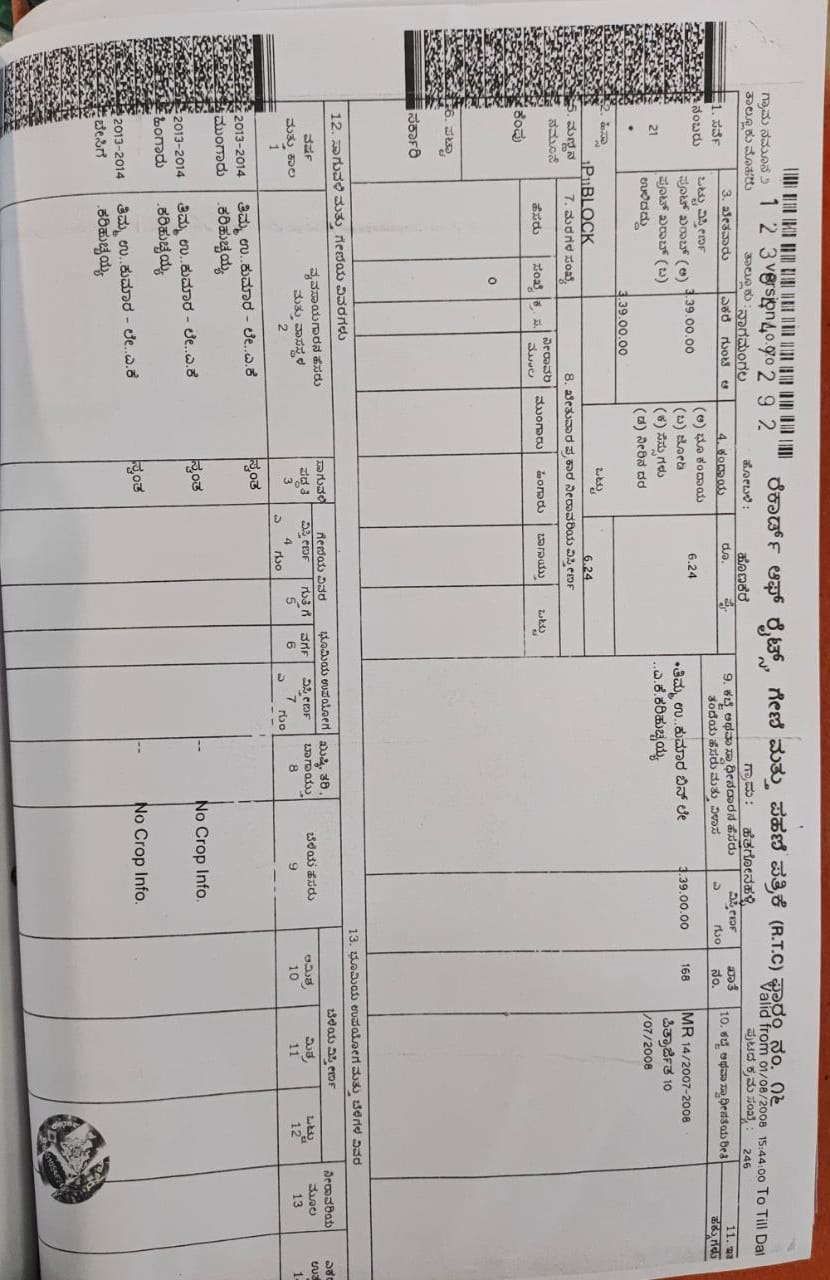 ರೆಕಾರ್ಡ್ಸ್ ಆಫ್ ರೈಟ್ಸ್ ಗೇಣಿ ಮತ್ತು ಪಹಣಿ ಪತ್ರಿಕೆ (R.T.C) ಫಾರಂ ನಂ.
Valid from 01/08/2008 15:44:00 To Till Dat
ಗ್ರಾಮ ನಮೂನೆ ೨
ತಾಲ್ಲೂಕು : ನಾಗಮಂಗಲ
ಹೋಬಳಿ : ಹೊಣಕೆರೆ
ಗ್ರಾಮ :
ಪುಟದ ಕ್ರಮ ಸಂಖ್ಯೆ : 246
1. ಸರ್ವೆ ನಂಬರು
21
*
2. ಹಿಸ್ಸಾ
P1BLOCK
3. ಬೇಕವಾರು
ಎಕರೆ ಗುಂಟೆ ಆ
ಒಟ್ಟು ವಿಸ್ತೀರ್ಣ 3.39.00.00
ಪೂಟ್ ಖರಾಬ್ (ಅ)
ಪೂಟ್ ಖರಾಬ್ (ಬ)
ಉಳಿದದ್ದು 3.39.00.00
4. ಕಂದಾಯ
ರೂ. ಪೈ
(ಅ) ಭೂ ಕಂದಾಯ 6.24
(ಬ) ಜೋಡಿ
(ಕ) ಸೆಸ್ಸುಗಳು
(ಡ) ನೀರಿನ ದರ
ಒಟ್ಟು 6.24
5. ಮಣ್ಣಿನ ನಮೂನೆ
ಕೆಂಪು
6. ಪಟ್ಟಾ
ಸರ್ಕಾರಿ
7. ಮರಗಳ ಸಂಖ್ಯೆ
ಹೆಸರು ಸಂಖ್ಯೆ
0
8. ಬೇಕುವಾರ ಪ್ರಕಾರ ನೀರಾವರಿಯ ವಿಸ್ತೀರ್ಣ
ಕ್ರ. ಸಂ. ನೀರಾವರಿ ಮೂಲ ಮುಂಗಾರು ಹಿಂಗಾರು ಬಾಗಾಯ್ತು ಒಟ್ಟು
9. ಕಬ್ಜೆ ಅಥವಾ ಸ್ವಾಧೀನದಾರನ ಹೆಸರು
ತಂದೆಯ ಹೆಸರು ಮತ್ತು ವಿಳಾಸ
ವಿಸ್ತೀರ್ಣ
ಎ ಗುಂ
ಖಾತೆ ನಂ.
*ತಿಮ್ಮ ಉ..ಕುಮಾರ ಬಿನ್ ಲೇ
..ಎ.ಕೆ.ಕರಿಹುಚ್ಚಯ್ಯ
3.39.00.00 168
10. ಕಬ್ಜೆ ಅಥವಾ ಸ್ವಾಧೀನತೆಯ ರೀತಿ
MR 14/2007-2008
ಪಿತ್ರಾರ್ಜಿತ 10
/07/2008
12. ಸಾಗುವಳಿ ಮತ್ತು ಗೇಣಿಯ ವಿವರಗಳು
13. ಭೂಮಿಯ ಉಪಯೋಗ ಮತ್ತು ಬೆಳೆಗಳ ವಿವರ
ವರ್ಷ ಮತ್ತು ಕಾಲ 1
ವ್ಯವಸಾಯಗಾರನ ಹೆಸರು ಮತ್ತು ವಾಸಸ್ಥಳ 2
ಸಾಗುವಳಿ ಪದ್ಧತಿ 3
ಗೇಣಿಯ ವಿವರ
ವಿಸ್ತೀರ್ಣ 4 ಎ ಗುಂ
ಗುತ್ತಿಗೆ 5
ಭೂಮಿಯ ಉಪಯೋಗ
ವರ್ಗ 6
ವಿಸ್ತೀರ್ಣ 7 ಎ ಗುಂ
ಬಾಗಾಯ್ತು 8
ಬೆಳೆಯ ಹೆಸರು 9
ಬೆಳೆಯ ವಿಸ್ತೀರ್ಣ
ಅಮಿಶ್ರ 10
ಮಿಶ್ರ 11
ಒಟ್ಟು 12
ನೀರಾವರಿಯ ಮೂಲ 13
2013-2014 ಮುಂಗಾರು ತಿಮ್ಮ ಉ..ಕುಮಾರ - ಲೇ..ಎ.ಕೆ .ಕರಿಹುಚ್ಚಯ್ಯ ಸ್ವಂತ
2013-2014 ಹಿಂಗಾರು ತಿಮ್ಮ ಉ..ಕುಮಾರ - ಲೇ..ಎ.ಕೆ .ಕರಿಹುಚ್ಚಯ್ಯ ಸ್ವಂತ -- No Crop Info.
2013-2014 ಬೇಸಿಗೆ ತಿಮ್ಮ ಉ..ಕುಮಾರ - ಲೇ..ಎ.ಕೆ .ಕರಿಹುಚ್ಚಯ್ಯ ಸ್ವಂತ -- No Crop Info.